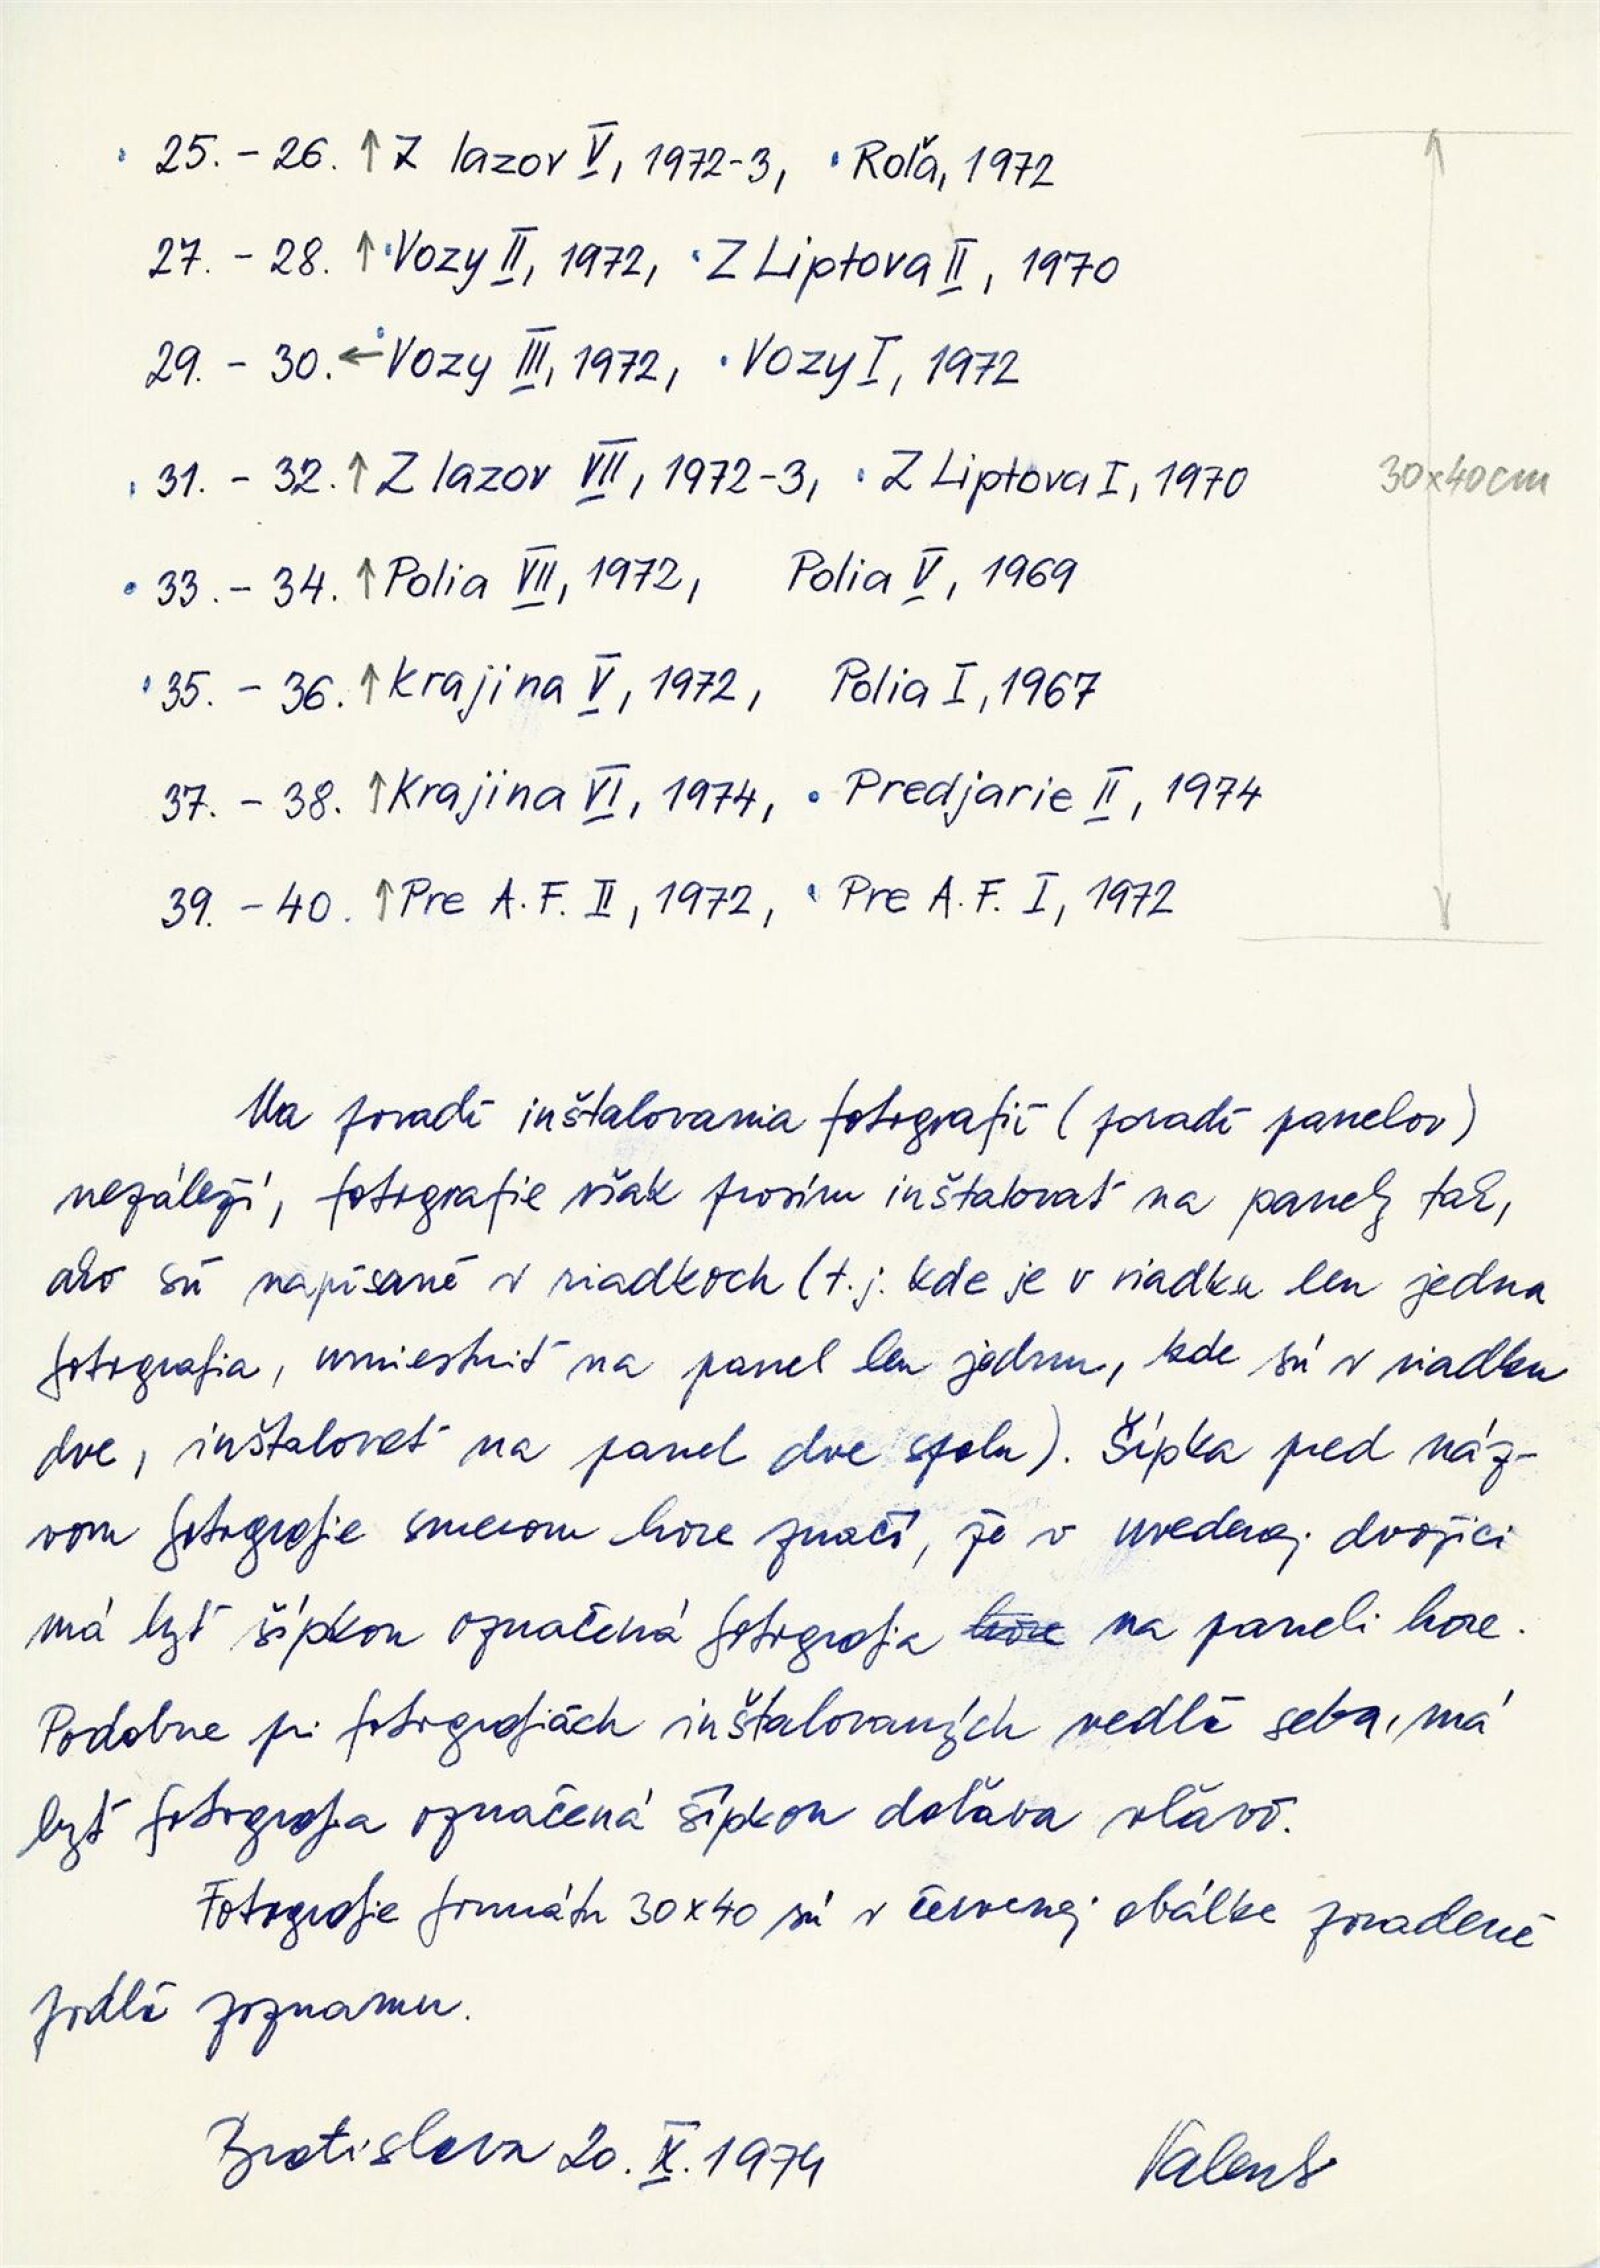 25. - 26. ↑ Z lazov V, 1972-3, Roľa, 1972
27. - 28. ↑ Vozy II, 1972, Z Liptova II, 1970
29. - 30. ← Vozy III, 1972, Vozy I, 1972
31. - 32. ↑ Z lazov VII, 1972-3, Z Liptova I, 1970
30x40cm
33. - 34. ↑ Polia VII, 1972, Polia V, 1969
35. - 36. ↑ Krajina V, 1972, Polia I, 1967
37. - 38. ↑ Krajina VI, 1974, Predjarie II, 1974
39. - 40. ↑ Pre A. F. II, 1972, Pre A. F. I, 1972
Na poradí inštalovania fotografií (poradí panelov)
nezáleží, fotografie však prosím inštalovať na panely tak,
ako sú napísané v riadkoch (t. j. kde je v riadku len jedna
fotografia, umiestniť na panel len jednu, kde sú v riadku
dve, inštalovať na panel dve spolu). Šípka pred náz-
vom fotografie smerom hore značí, že v uvedenej dvojici
má byť šípkou označená fotografia hore na paneli hore.
Podobne pri fotografiách inštalovaných vedľa seba, má
byť fotografia označená šípkou doľava vľavo.
Fotografie formátu 30x40 sú v červenej obálke poradené
podľa zoznamu.
Bratislava 20. X. 1974